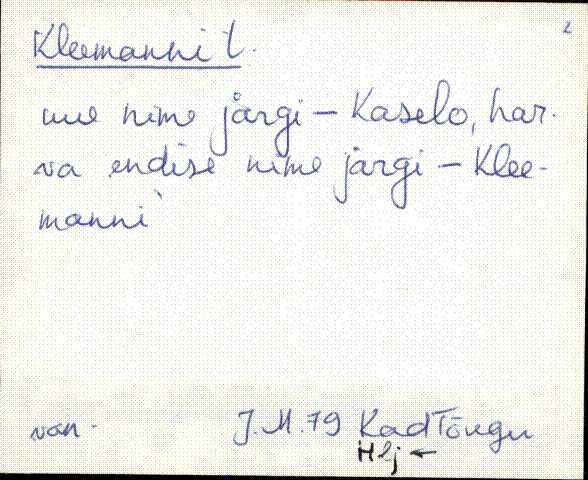 2
Kleemanni t.
uue nime järgi – Kaselo, har-
va endise nime järgi – Klee-
manni
van.
J.M.79 Kad Tõugu
Hlj ←